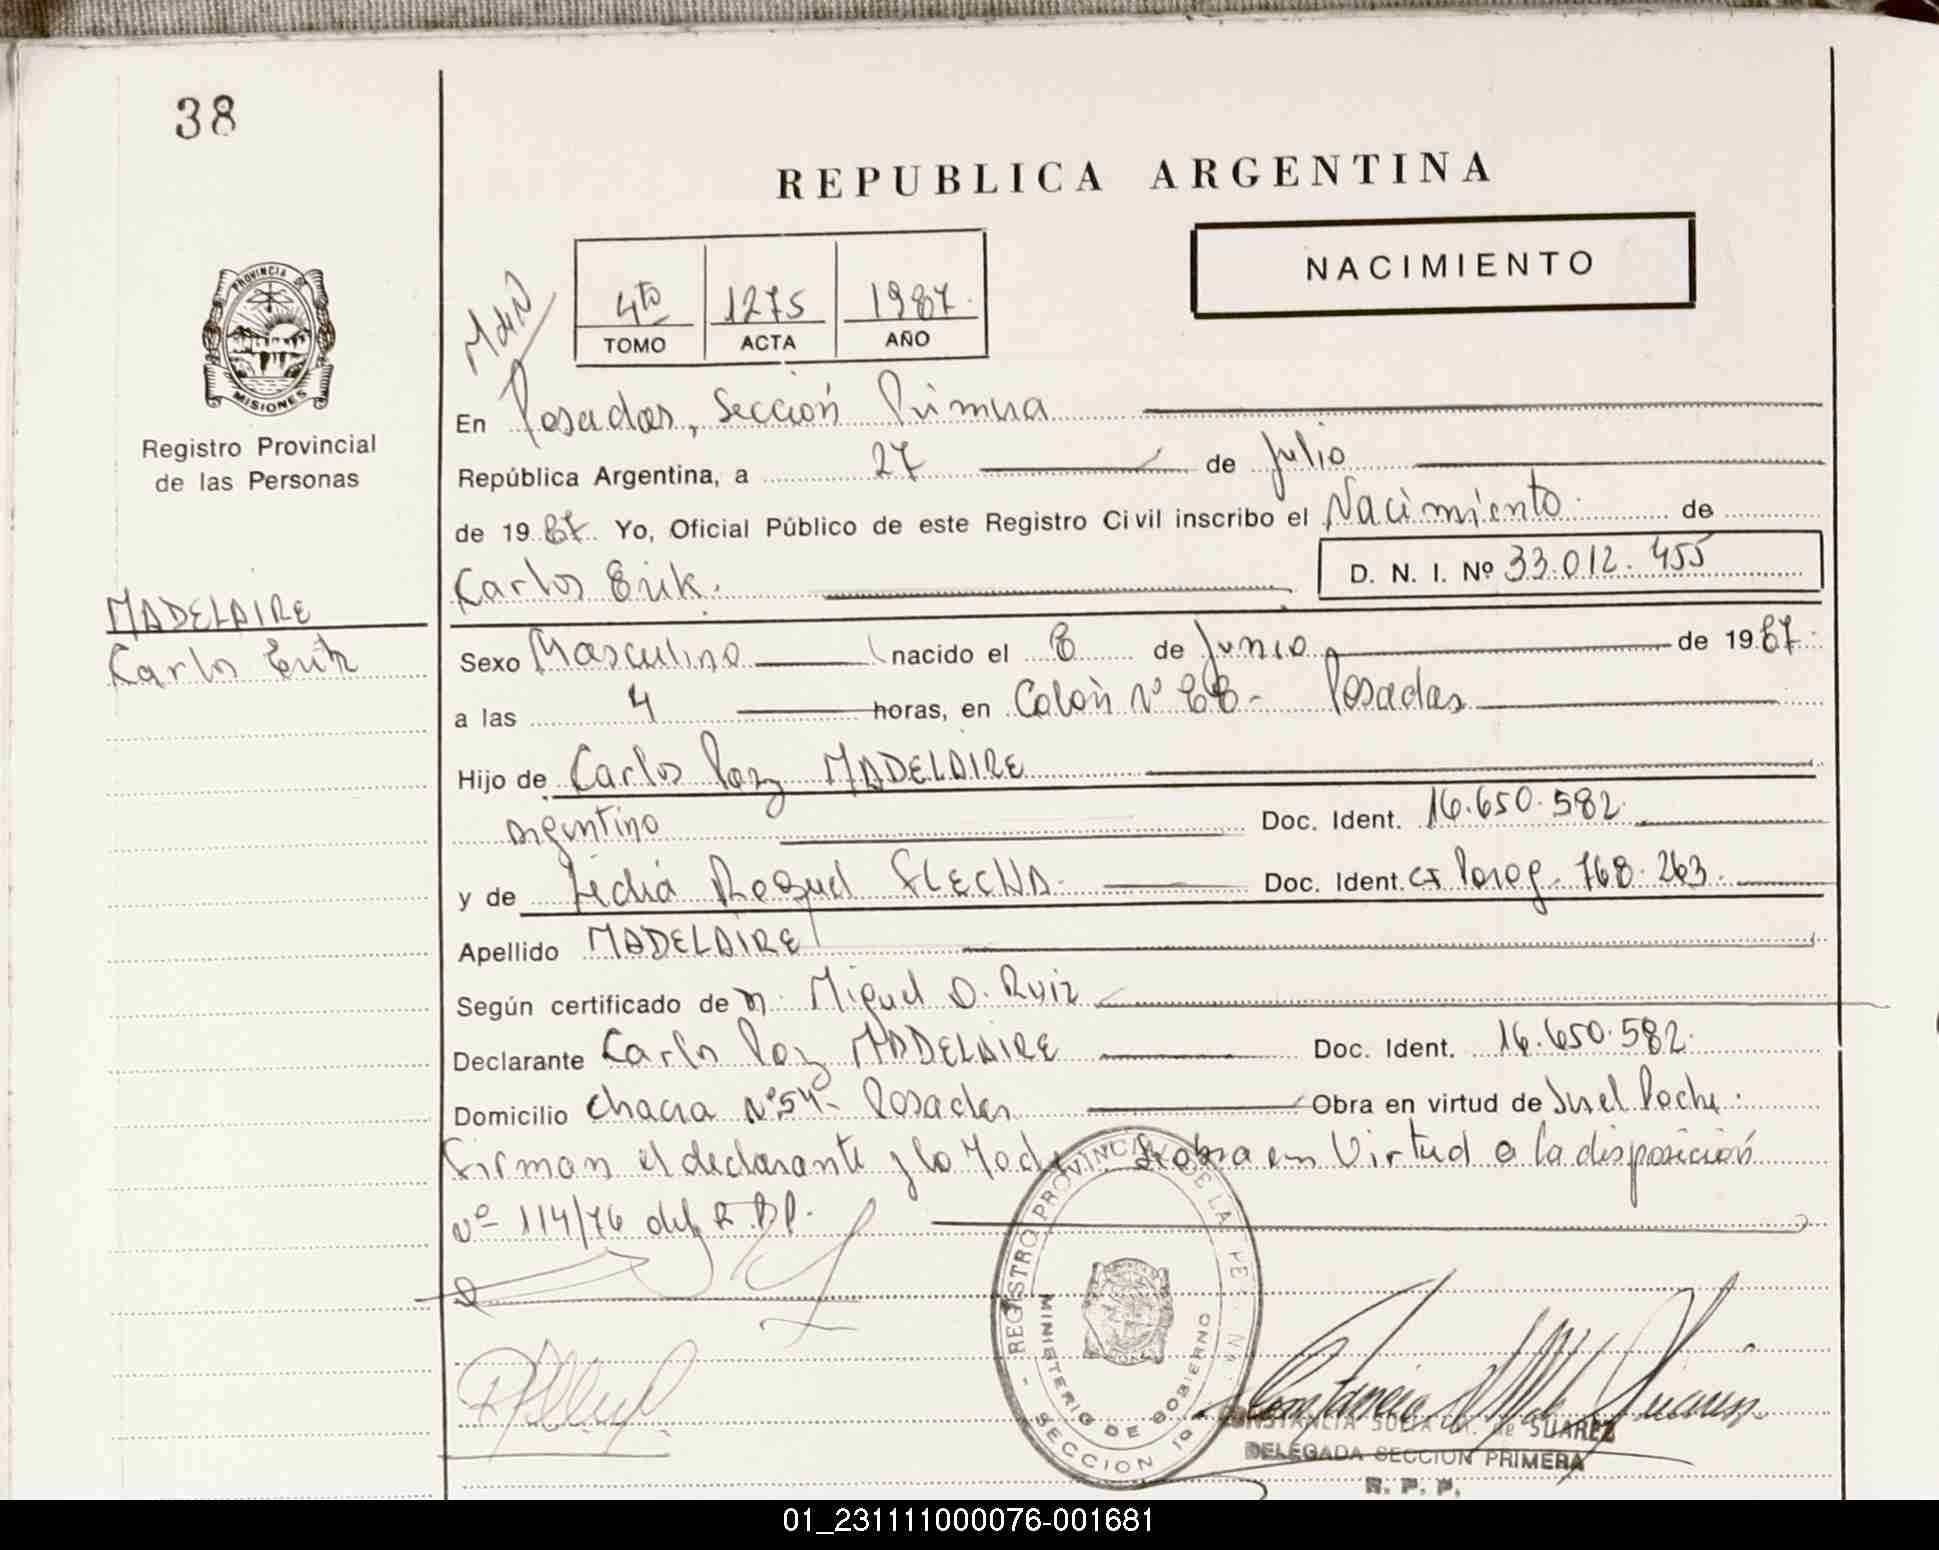 38
REPUBLICA ARGENTINA
NACIMIENTO
4to 1275 1987.
TOMO ACTA AÑO
PROVINCIA DE
MISIONES
Registro Provincial
de las Personas
En Posadas, Sección Primera
República Argentina, a 27 de Julio
de 1987. Yo, Oficial Público de este Registro Civil inscribo el Nacimiento de
Carlos Erik. D. N. I. Nº 33.012.455
MADELAIRE
Carlos Erik
Sexo Masculino nacido el 8 de Junio de 1987.
a las 4 horas, en Colón Nº 68- Posadas
Hijo de Carlos Paz MADELAIRE
argentino Doc. Ident. 16.650.582.
y de Raquel FLECHA. Doc. Ident. 768.263.
Apellido MADELAIRE
Según certificado de Miguel O. Ruiz
Declarante Carlos Paz MADELAIRE Doc. Ident. 16.650.582.
Domicilio Chacra Nº54- Posadas Obra en virtud de
Firman el declarante y la Madre obra en Virtud a la disposición
Nº 114/76 del R.P.P.
REGISTRO PROVINCIAL DE LA PE
MINISTERIO DE GOBIERNO
SECCION 1º
CONSTANCIA de SUAREZ
DELEGADA SECCION PRIMERA
R. P. P.
01_231111000076-001681